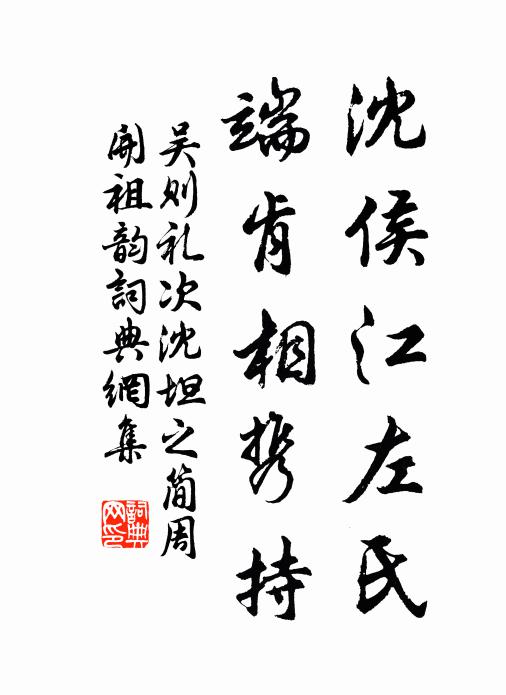 沈侯江左氏
端肯相携持
吴则礼次沈坦之简周
开祖韵词典網集
詞典網印